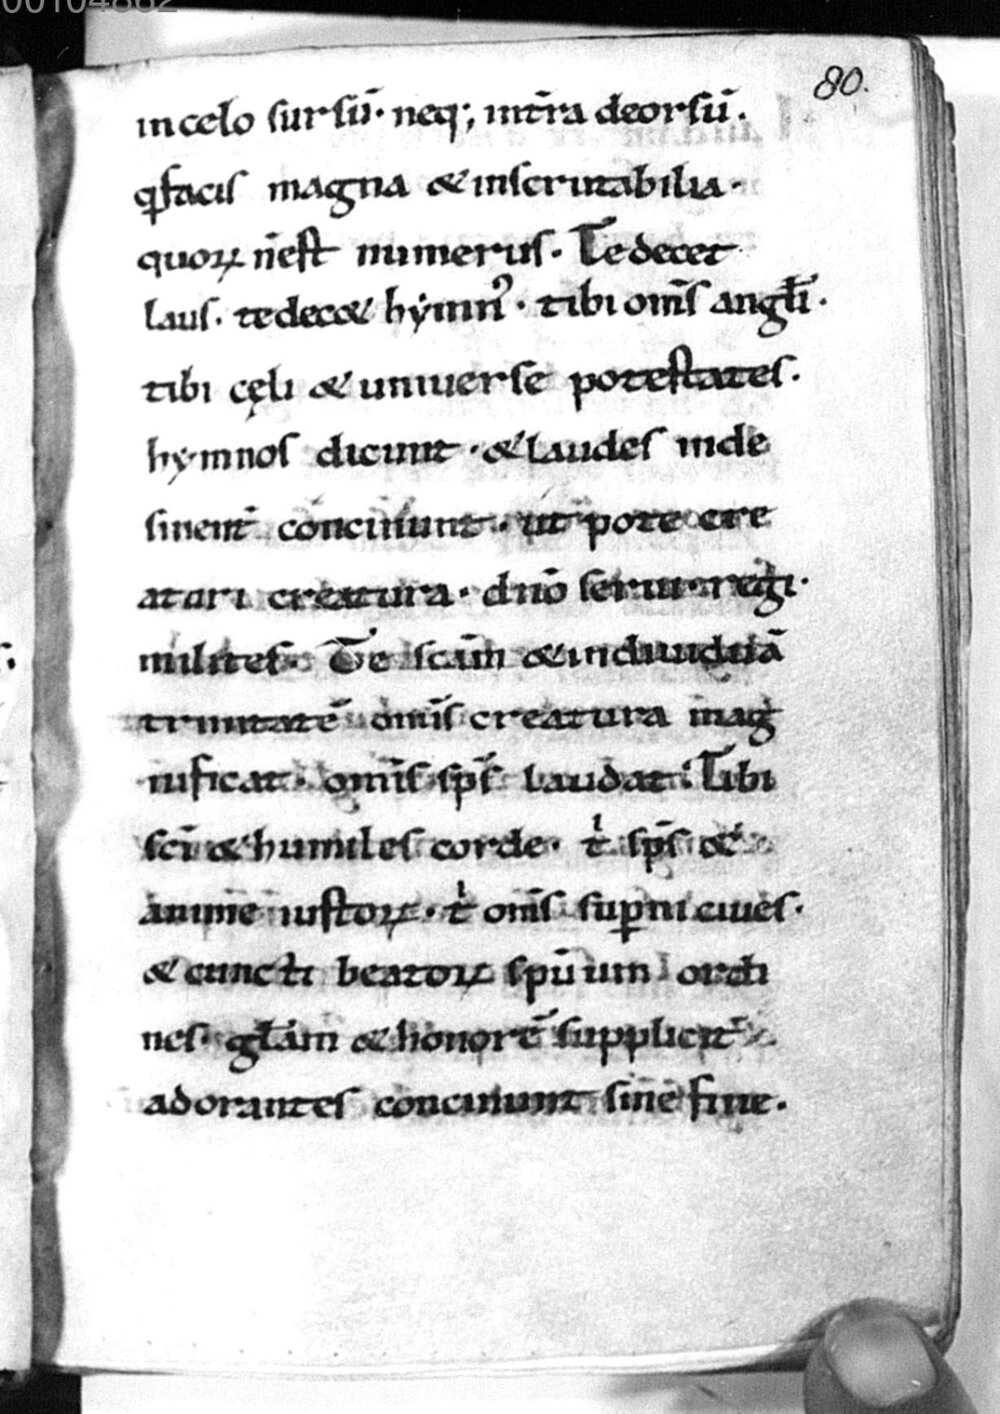 00104882
80.
in celo sursū· neq; int̄ra deorsū.
qͥfacis magna & inscrutabilia·
quoꝝ n̄est numerus· Te decet
laus· te dec& hẏmn᷒· tibi om̄s angłi·
tibi cęli & uniuerse potestates.
hẏmnos dicunt· & laudes inde
sinent̄ concinunt· ut pote cre
atori creatura· dnō serui· regi·
milites· Te scām & indiuiduā
trinitatē om̄is creatura mag
nificat· om̄is sp̄s laudat· Tibi
sc̄i & humiles corde· tͥ sp̄s &
anime iustoꝝ· tͥ om̄s suꝑni ciues·
& cuncti beatoꝝ spūum ordi
nes· głam & honorē supplicit̄
adorantes concinunt sine fine.